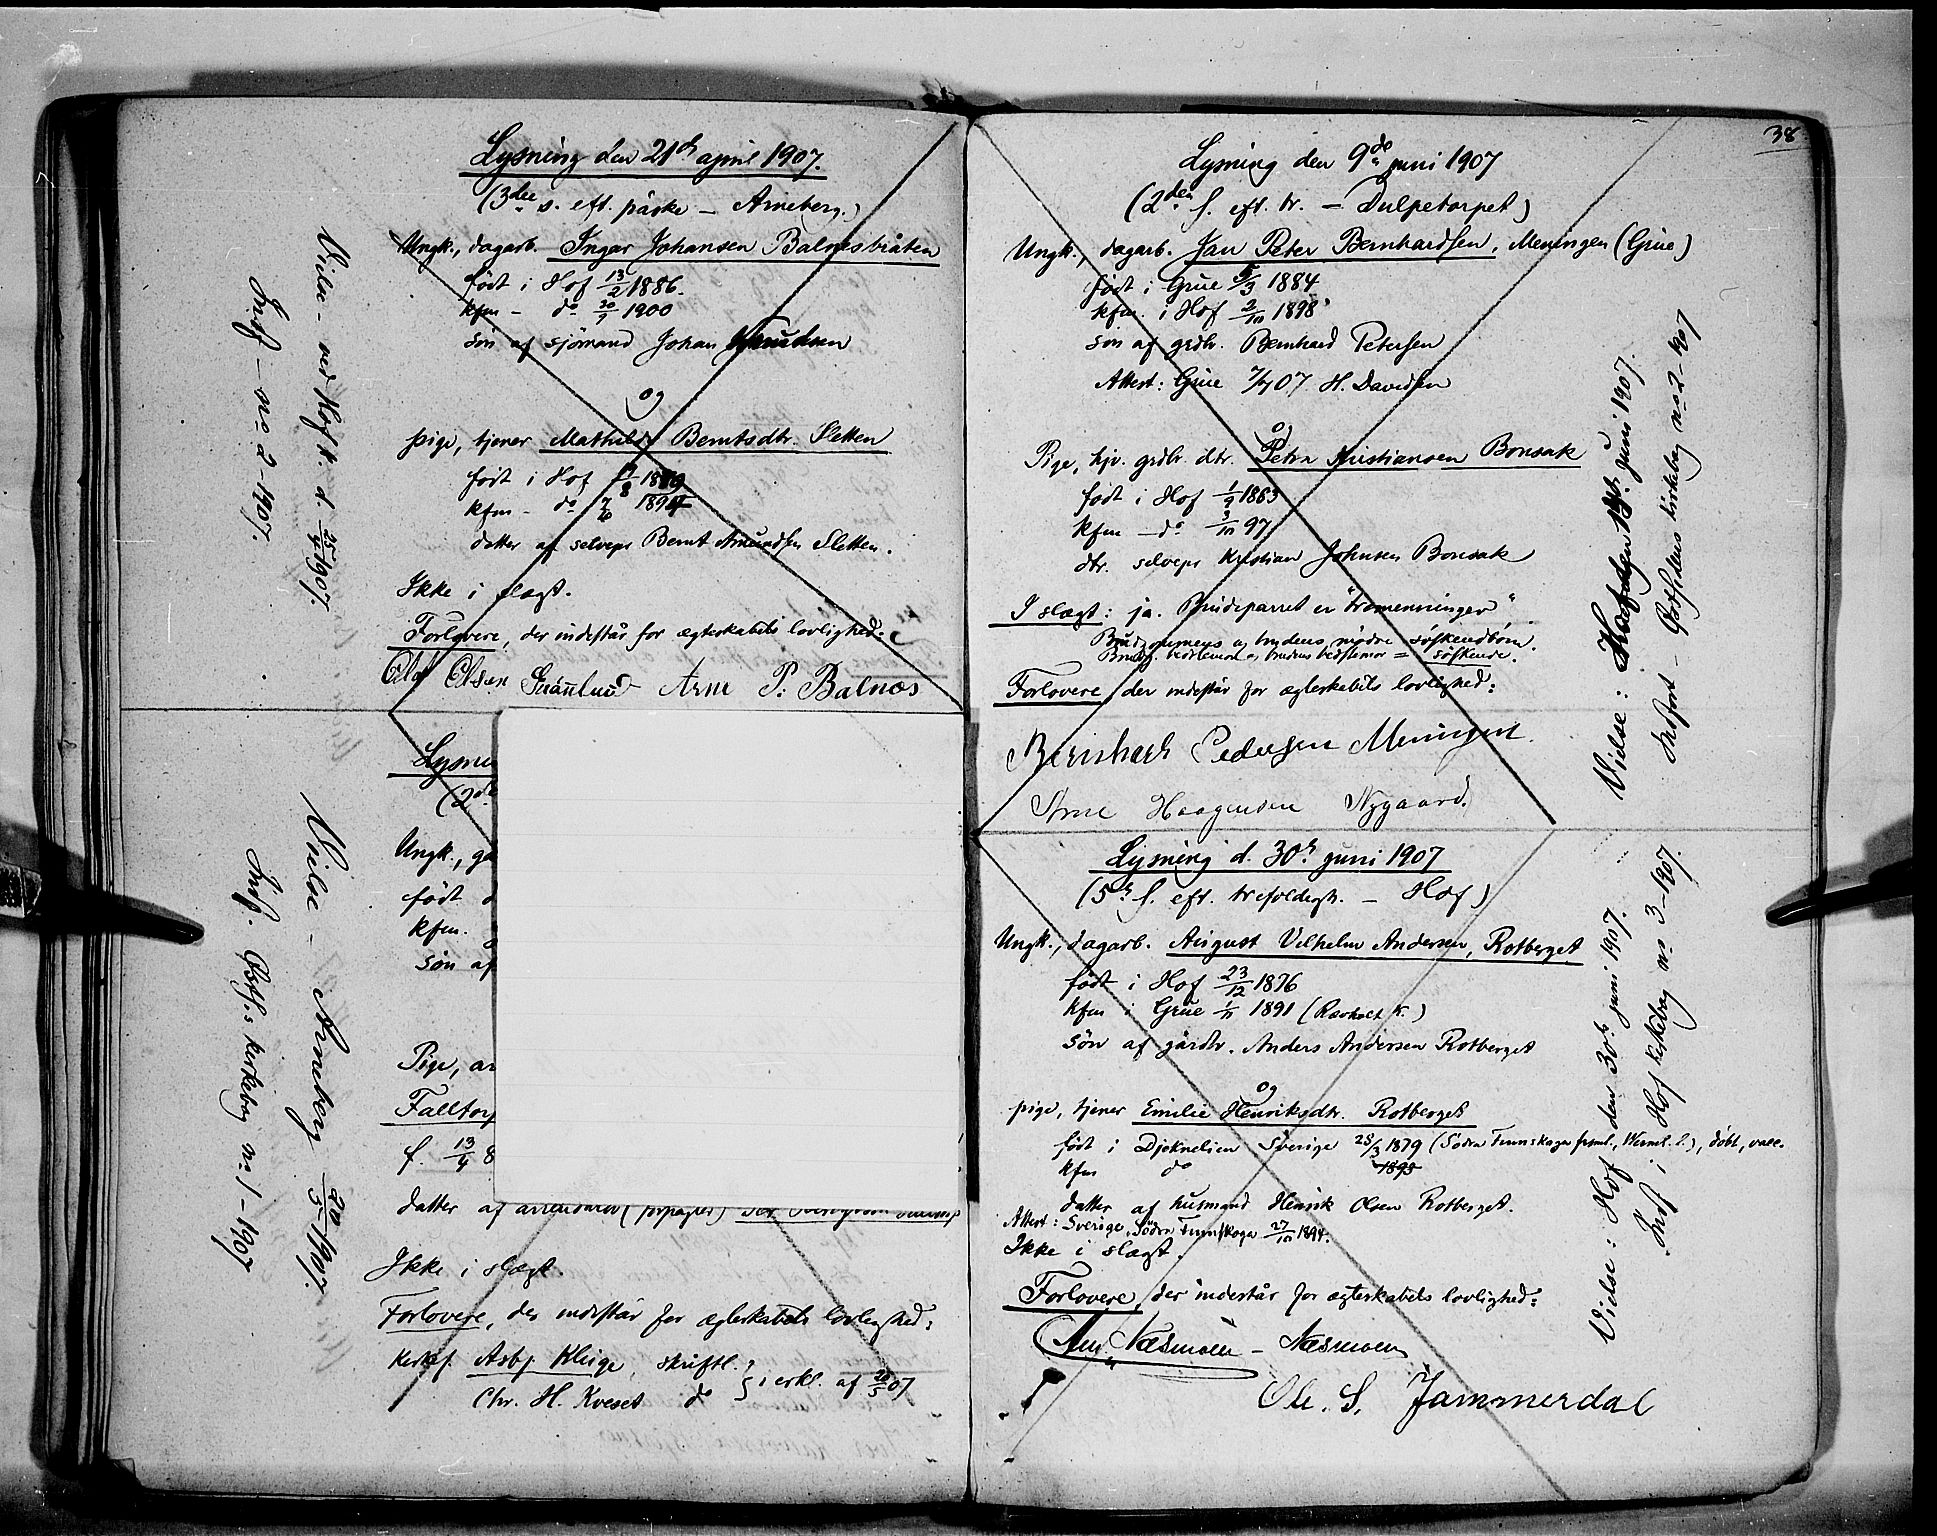 38
Lysning den 21de april 1907.
(3die s. eft. påske – Arneberg.)
Ungk., dagarb. Ingar Johansen Balnesbråten
født i Hof 13/2 1886.
kfm – do 30/9 1900
søn af sjømand Johan Knudsen
og
pige, tjener Mathilde Berntsdtr. Sletten
født i Hof /8 1879
kfm – do 7/6 1894
datter af selveger Bernt Amundsen Sletten.
Ikke i slægt.
Forlovere, der indestår for ægteskabets lovlighed:
Olof Olsen Grønlund Arne P: Balnæs
Vielse – ved Hof k. d. 25/4 1907.
Indf – no 2 – 1907.
Lysnin
(2de
Ungk., gå
født
kfm.
søn af
Pige, ar
Falltorp
f. 13/4 8
datter af arrendator (forpagter)
Ikke i slægt
Forlovere, der indestår for ægteskabets lovlighed:
kirkesf. Asbj. Kluge, skriftl.
Chr. H. Kveset do } i erkl. af 20/5 07
Vielse – Arneberg 20/5 1907.
Indf. Østs.s kirkebog no 1 – 1907
Lysning den 9de juni 1907
(2den s. eft. tr. – Dulpetorpet)
Ungk., dagarb. Jan Peter Bernhardsen, Meningen (Grue)
født i Grue 5/3 1884
kfm. i Hof 2/10 1898
søn af grdbr. Bernhard Petersen
Attest: Grue 7/4 07 H. Davidsen
og
Pige, hjv. grdbr. dtr. Petra Kristiansen Bonsak
født i Hof 1/9 1883
kfm – do 3/10 97
dtr. selveger Kristian Johnsen Bonsak
I slægt: ja. Brudeparret er "tremenninger".
Brudgommens og brudens mødre søskendebørn.
Brudg. bedstemor og brudens bedstemor = søskende.
Forlovere der indestår for ægteskabets lovlighed:
Bernhard Pedersen Meningen
Arne Haagensen Nygaard.
Vielse: Hof den juni 1907.
Indført – Østsidens kirkebog no 2 – 1907
Lysning d. 30te juni 1907
(5te s. eft. trefoldigh. – Hof)
Ungk., dagarb. August Vilhelm Andersen, Rotberget
født i Hof 23/12 1876
kfm i Grue 1/11 1891 (Revholt k.)
søn af gårdbr. Anders Andersen Rotberget
og
pige, tjener Emilie Henriksdtr. Rotberget
født i Djeknelien Sverige 25/3 1879 (Södra Finnskoga forsml., Werml. l.), døbt, vacc.
kfm do 1895
datter af husmand Henrik Olsen Rotberget.
Attest: Sverige, Södra Finnskoga 27/10 1894.
Ikke i slægt.
Forlovere, der indestår for ægteskabets lovlighed:
Næsmoen – Næsmoen
Ole. S. Jammerdal
Vielse: Hof den 30te juni 1907.
Indf. i Hof kirkebog no 3 – 1907.